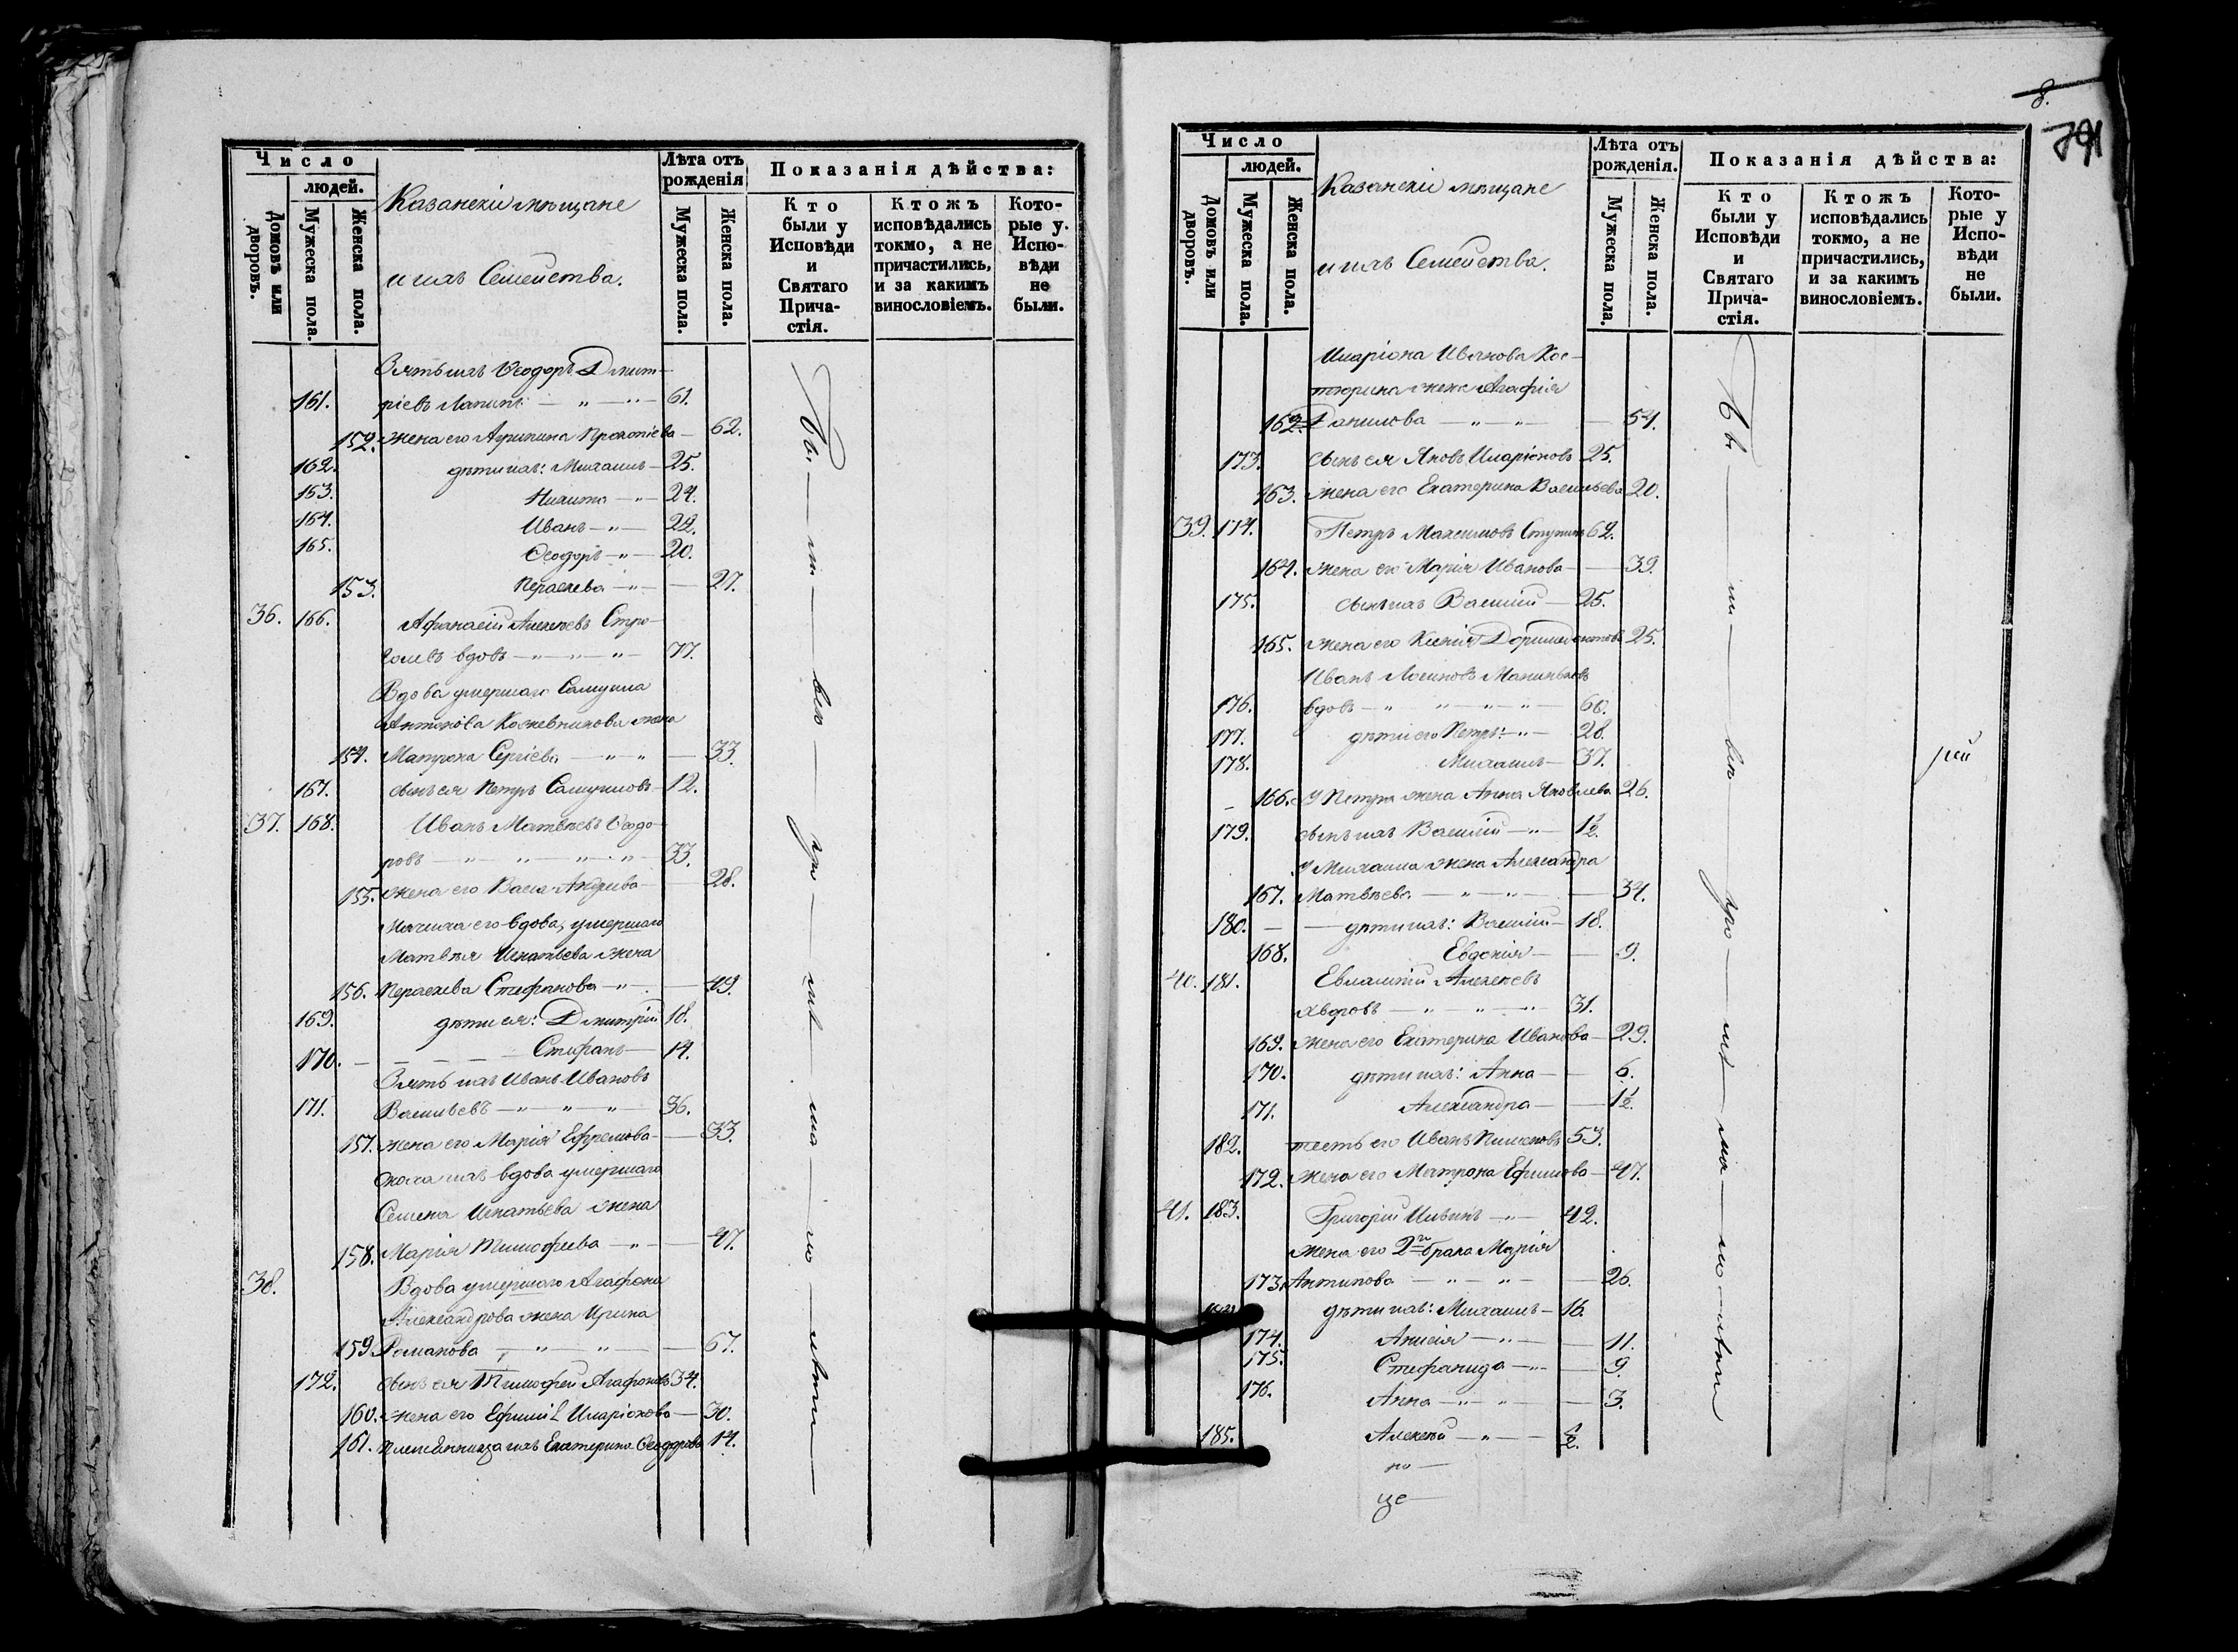 Число
людей.
Домовъ или дворовъ.
Мужеска пола.
Женска пола.
Казанскіе мѣщане
и ихъ Семейства.
Лѣта отъ рожденія
Мужеска пола.
Женска пола.
Показанія дѣйства:
Кто были у Исповѣди и Святаго Прича-стія.
Ктожъ исповѣдались токмо, а не причастились, и за какимъ винословіемъ.
Кото-рые у Испо-вѣди не были.
Зять ихъ Ѳеодоръ Дмит-
161. ріевъ Лапинъ — " — " — 61.
152. жена его Агрипина Прокопіева — 62.
162. дѣти ихъ: Михаилъ — 25.
163. Никита — " — 24.
164. Иванъ — " — 22.
165. Ѳеодоръ — " — 20.
153. Параскева — " — 27.
36. 166. Афанасій Алексѣевъ Стро-
голевъ вдовъ — " — " — " — 77.
Вдова умершаго Самуила
Антонова Кожевникова жена
154. Матрона Сергіева — " — " — 33.
167. сынъ ея Петръ Самуиловъ — 12.
37. 168. Иванъ Матвѣевъ Ѳеодо-
ровъ — " — " — " — " — 33.
155. жена его Васса Андреева — 28.
Мачиха его вдова, умершаго
Матвѣя Игнатьева жена
156. Параскева Стефанова — " — 49.
169. дѣти ея: Дмитрій 18.
170. — — — — Стефанъ — 14.
Зять ихъ Иванъ Ивановъ
171. Васильевъ — " — " — " — 36.
157. жена его Марія Ефремова — 33.
сноха ихъ вдова умершаго
Семена Игнатьева жена
158. Марія Тимофеева — " — 47.
38. Вдова умершаго Агафона
Александрова жена Ирина
159. Романова — " — " — 67.
172. сынъ ея Тимофей Агафоновъ 34.
160. жена его Ефимія Иларіонова — 30.
161. племянница ихъ Екатерина Ѳеодорова 14.
8.
791
Число
людей.
Домовъ или дворовъ.
Мужеска пола.
Женска пола.
Казанскіе мѣщане
и ихъ Семейства.
Лѣта отъ рожденія.
Мужеска пола.
Женска пола.
Показанія дѣйства:
Кто были у Исповѣди и Святаго Прича-стія.
Ктожъ исповѣдались токмо, а не причастились, и за какимъ винословіемъ.
Кото-рые у Испо-вѣди не были.
Иларіона Иванова Кос-
тюрина жена Агафія
162. Данилова — " — " — 54.
173. сынъ ея Яковъ Иларіоновъ 25.
163. жена его Екатерина Васильева 20.
39. 174. Петръ Максимовъ Ступинъ 62.
164. жена его Марія Иванова — 39.
175. сынъ ихъ Василій — 25.
165. жена его Ксенія Доримедонтова 25.
Иванъ Логиновъ
176. вдовъ — " — " — " — " — 60.
177. дѣти его Петръ: — " — 28.
178. Михаилъ — 37.
166. У Петра жена Анна Яковлева 26.
179. сынъ ихъ Василій — " — 1½.
У Михаила жена Александра
167. Матвѣева — " — " — 34.
180. — дѣти ихъ: Василій — 18.
168. Евдокія — 9.
40. 181. Евлампій Алексѣевъ
— " — " — " — 31.
169. жена его Екатерина Иванова — 29.
170. дѣти ихъ: Анна — 6.
171. Александра — 1½.
182. тесть его Иванъ Пименовъ 53.
172. жена его Матрона Ефимова — 47.
41. 183. Григорій Ильинъ — " — 42.
жена его 2го брака Марія
173. Антипова — " — " — 26.
дѣти ихъ: Михаилъ — 16.
174. Анисія — " — 11.
175. Стефанида — " — 9.
176. Анна — " — " — 3.
185. Алексѣй — " — ½.